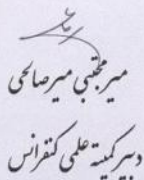 میر مجتبی میرصالحی
دبیر کمیته علمی کنفرانس